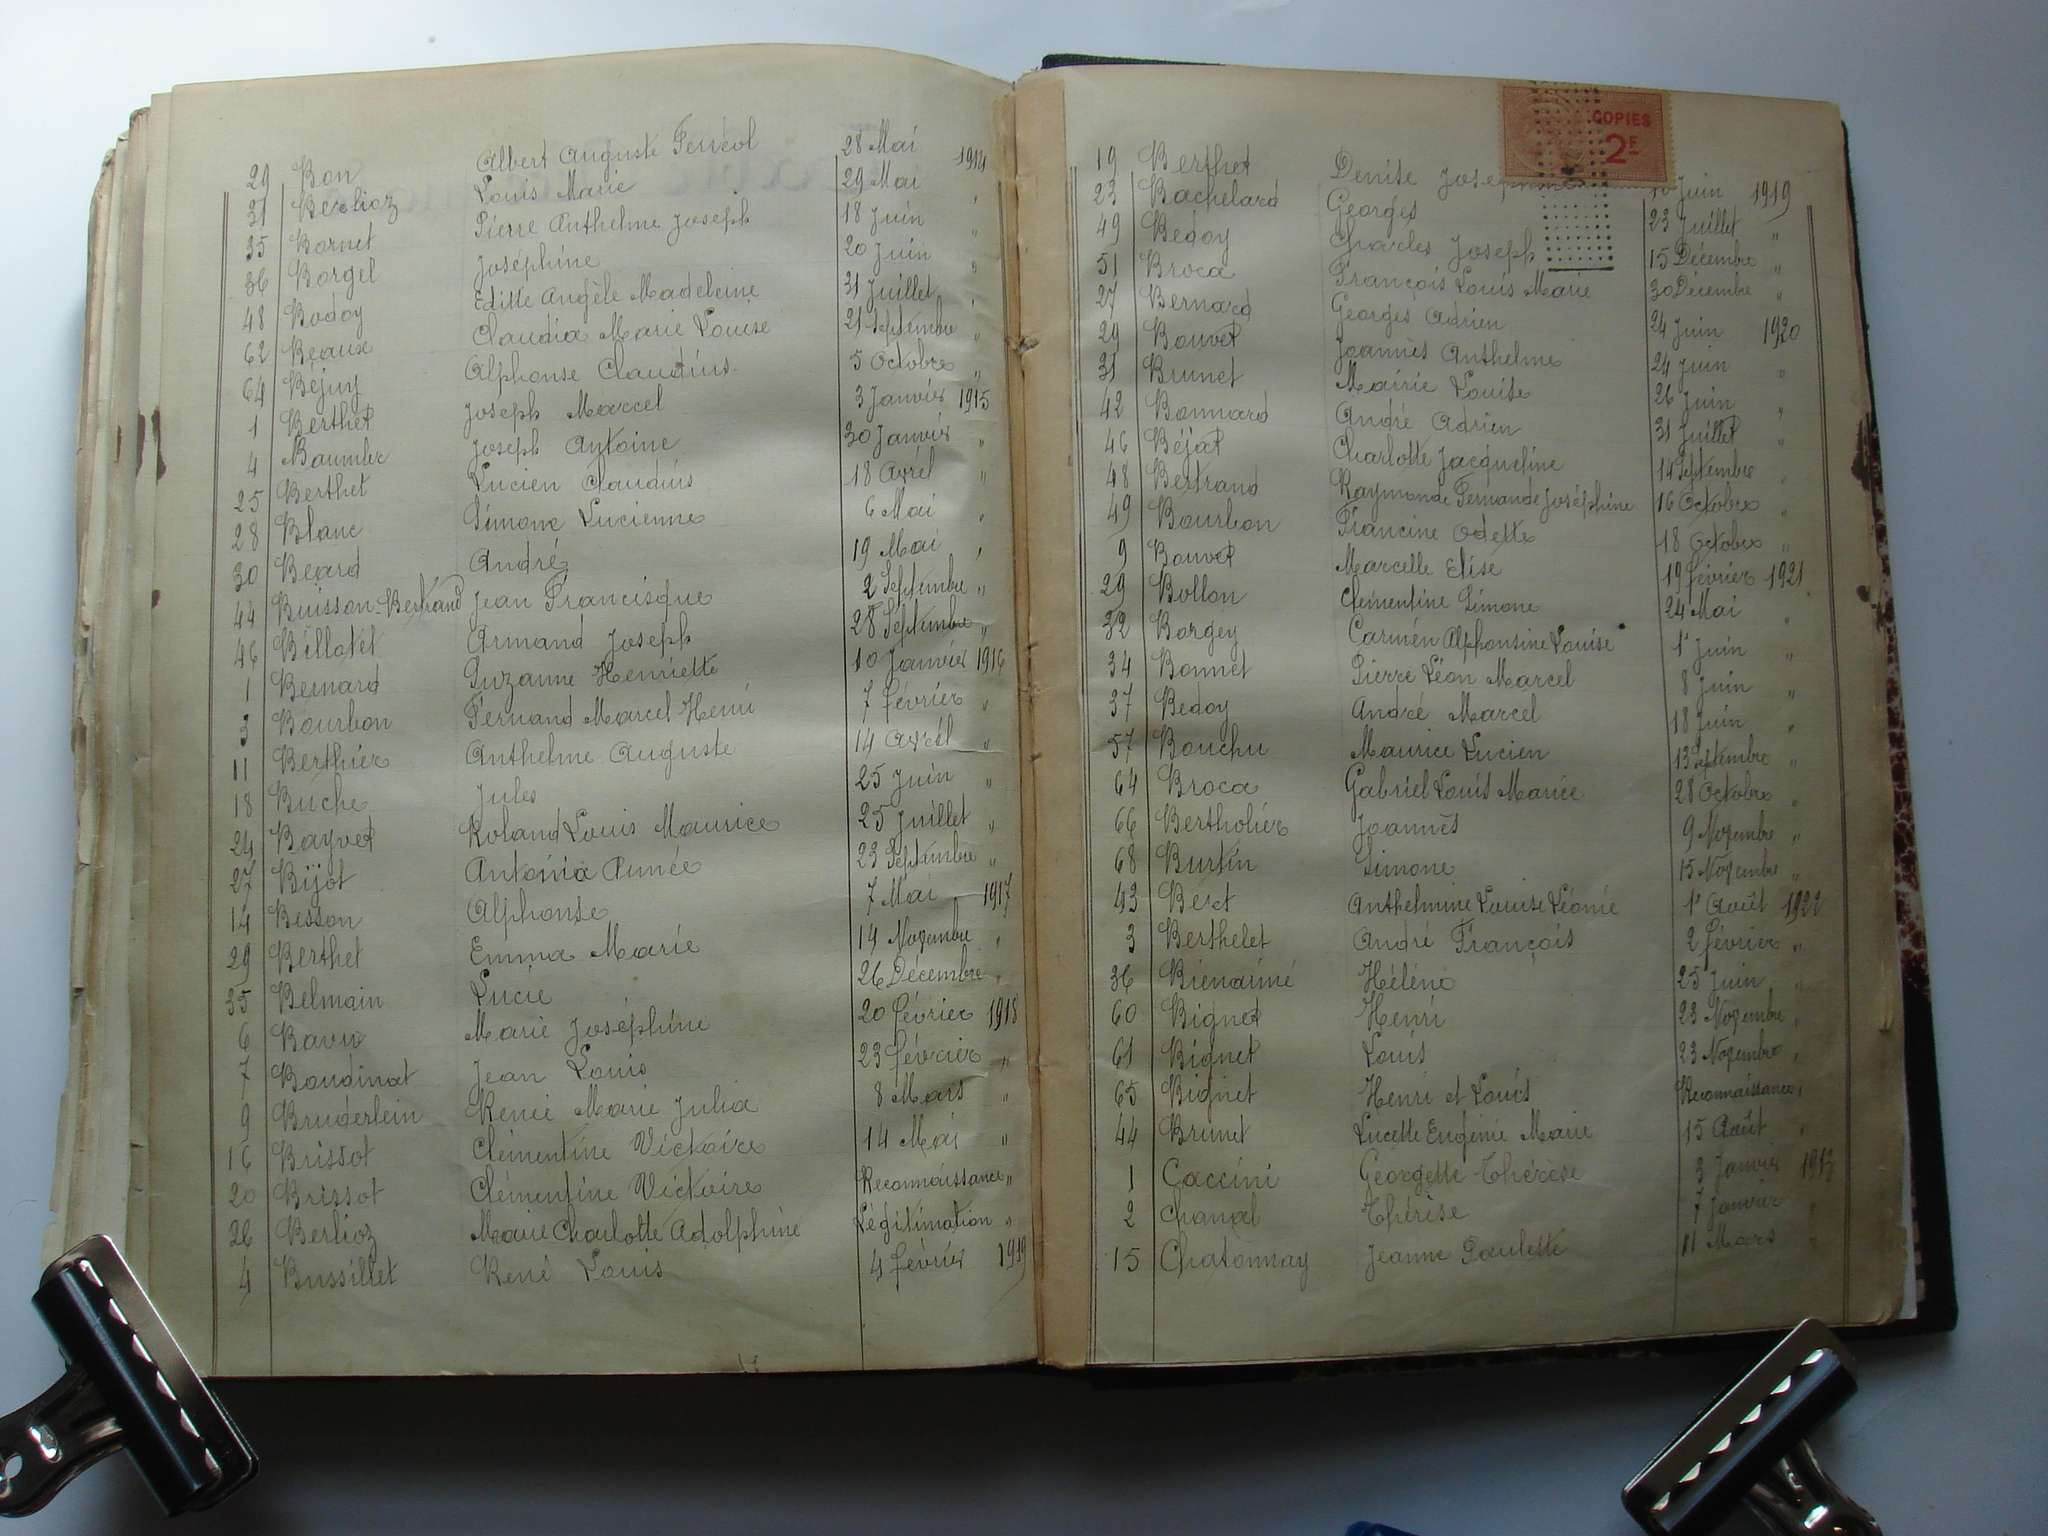 29 Bon Albert Auguste Ferréol 28 Mai 1914
31 Berlioz Louis Marie 29 Mai "
35 Bornet Pierre Anthelme Joseph 18 Juin "
36 Borgel Joséphine 20 Juin "
48 Bodoy Editte Angèle Madeleine 31 Juillet "
62 Béaux Claudia Marie Louise 21 Septembre "
64 Béjuy Alphonse Claudius 5 Octobre "
1 Berthet Joseph Marcel 3 Janvier 1915
4 Baumler Joseph Antoine 30 Janvier "
25 Berthet Lucien Claudius 18 Avril "
28 Blanc Simone Lucienne 6 Mai "
30 Beard André 19 Mai "
44 Buisson-Bertrand Jean Francisque 2 Septembre "
46 Billotet Armand Joseph 28 Septembre "
1 Bernard Suzanne Henriette 10 Janvier 1916
3 Bourbon Fernand Marcel Henri 7 février "
11 Berthier Anthelme Auguste 14 Avril "
18 Buche Jules 25 Juin "
24 Bayvet Roland Louis Maurice 25 Juillet "
27 Bijot Antonia Aimée 23 Septembre "
14 Besson Alphonse 7 Mai 1917
29 Berthet Emma Marie 14 Novembre "
35 Belmain Lucie 26 Décembre "
6 Marie Joséphine 20 février 1918
7 Boudinat Jean Louis 23 février "
9 Bruderlein Renée Marie Julia 8 Mars "
16 Brissot Clémentine Victoire 14 Mai "
20 Brissot Clémentine Victoire Reconnaissance "
26 Berlioz Marie Charlotte Adolphine Légitimation "
4 Bussillet René Louis 4 février 1919
COPIES
2F
19 Berthet Denise Joséphine Juin 1919
23 Bachelard Georges 23 Juillet "
49 Begoy Charles Joseph 15 Décembre "
51 Broca François Louis Marie 30 Décembre "
27 Bernard Georges Adrien 24 Juin 1920
29 Bouvet Joannès Anthelme 24 Juin "
31 Brunet Mairie Louise 26 Juin "
42 Bonnard André Adrien 31 Juillet "
46 Béjat Charlotte Jacqueline 14 Septembre "
48 Bertrand Raymonde Fernande Joséphine 16 Octobre "
49 Bourbon Francine Odette 18 Octobre "
9 Bouvet Marcelle Elise 19 février 1921
29 Bollon Clementine Simone 24 Mai "
32 Borgey Carmén Alphonsine Louise 1r Juin "
34 Bonnet Pierre Léon Marcel 8 Juin "
37 Bedoy André Marcel 18 Juin "
57 Bouchu Maurice Lucien 13 Septembre "
64 Broca Gabriel Louis Marie 28 Octobre "
66 Bertholier Joannès 9 Novembre "
68 Burtin Simone 15 Novembre "
43 Bert Anthelmine Louise Léonie 1r Août 1922
3 Berthelet André François 2 février "
36 Bienaimé Hélène 25 Juin "
60 Bignet Henri 23 Novembre "
61 Bignet Louis 23 Novembre "
65 Bignet Henri et Louis Reconnaissance "
44 Brunet Lucette Eugénie Marie 15 Août "
1 Caccini Georgette Thérèse 3 Janvier 1913
2 Chanal Thérèse 7 Janvier "
15 Chatonnay Jeanne Paulette 11 Mars "